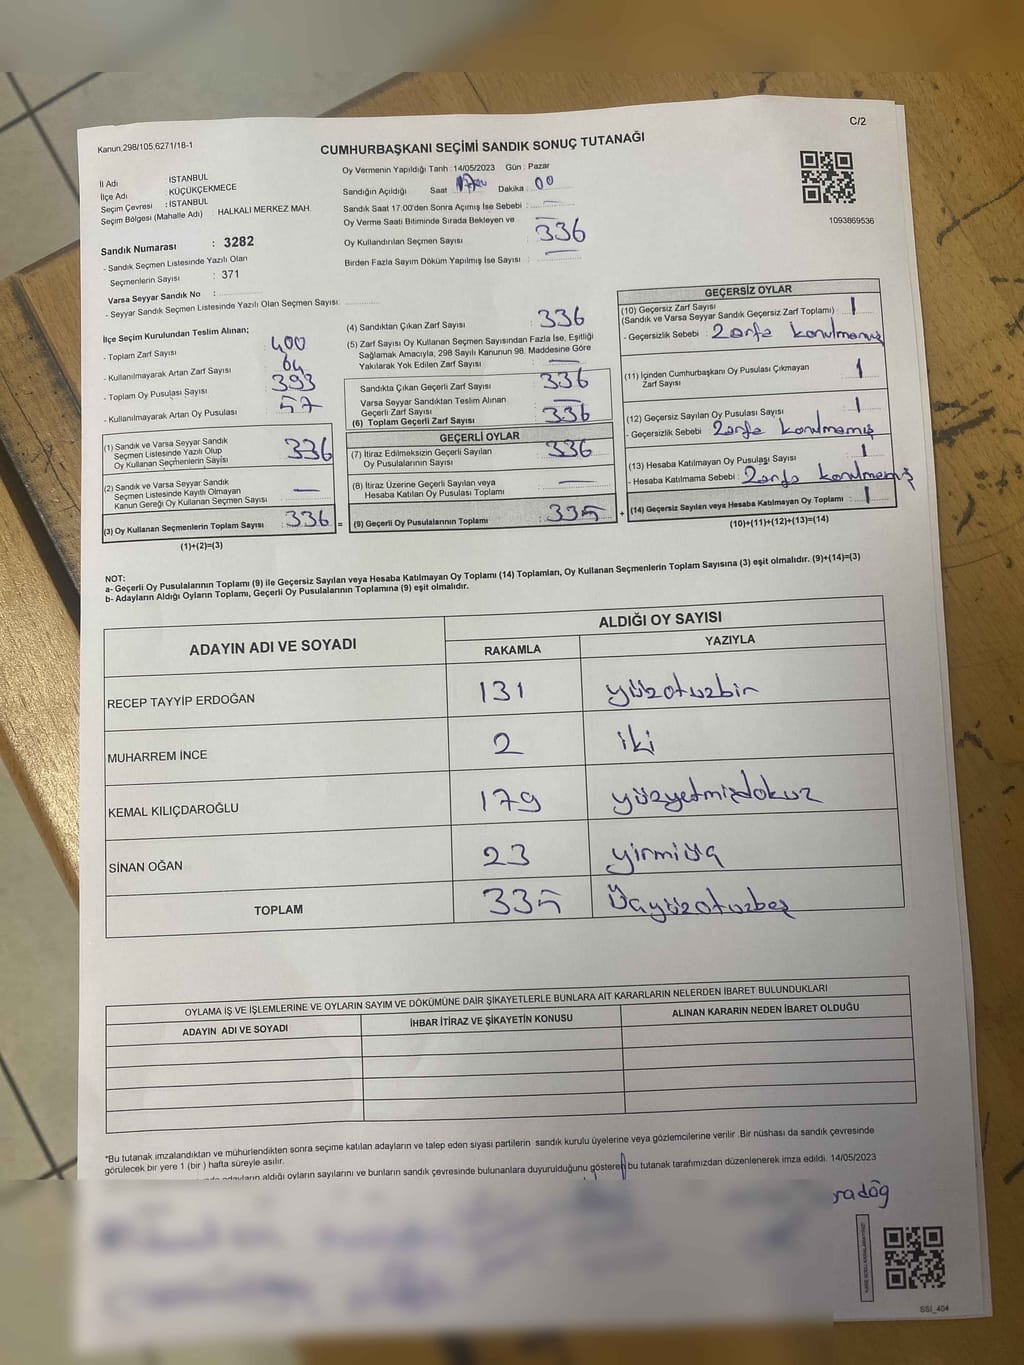 Kanun,298/105,6271/18-1
C/2
CUMHURBAŞKANI SEÇİMİ SANDIK SONUÇ TUTANAĞI
İl Adı : İSTANBUL
İlçe Adı : KÜÇÜKÇEKMECE
Seçim Çevresi : İSTANBUL
Seçim Bölgesi (Mahalle Adı) : HALKALI MERKEZ MAH.
Sandık Numarası : 3282
- Sandık Seçmen Listesinde Yazılı Olan
Seçmenlerin Sayısı : 371
Varsa Seyyar Sandık No :
- Seyyar Sandık Seçmen Listesinde Yazılı Olan Seçmen Sayısı:
Oy Vermenin Yapıldığı Tarih :14/05/2023 Gün : Pazar
Sandığın Açıldığı Saat Dakika : 00
Sandık Saat 17:00'den Sonra Açımış İse Sebebi : —
Oy Verme Saati Bitiminde Sırada Bekleyen ve —
Oy Kullandırılan Seçmen Sayısı : 336
Birden Fazla Sayım Döküm Yapılmış İse Sayısı : —
1093869536
İlçe Seçim Kurulundan Teslim Alınan;
- Toplam Zarf Sayısı 400
- Kullanılmayarak Artan Zarf Sayısı : 64
- Toplam Oy Pusulası Sayısı 393
- Kullanılmayarak Artan Oy Pusulası : 57
(1) Sandık ve Varsa Seyyar Sandık
Seçmen Listesinde Yazılı Olup
Oy Kullanan Seçmenlerin Sayısı 336
(2) Sandık ve Varsa Seyyar Sandık
Seçmen Listesinde Kayıtlı Olmayan
Kanun Gereği Oy Kullanan Seçmen Sayısı : —
(3) Oy Kullanan Seçmenlerin Toplam Sayısı : 336 =
(1)+(2)=(3)
(4) Sandıktan Çıkan Zarf Sayısı : 336
(5) Zarf Sayısı Oy Kullanan Seçmen Sayısından Fazla İse, Eşitliği
Sağlamak Amacıyla, 298 Sayılı Kanunun 98. Maddesine Göre
Yakılarak Yok Edilen Zarf Sayısı : —
Sandıkta Çıkan Geçerli Zarf Sayısı : 336
Varsa Seyyar Sandıktan Teslim Alınan
Geçerli Zarf Sayısı : —
(6) Toplam Geçerli Zarf Sayısı : 336
GEÇERLİ OYLAR
(7) İtiraz Edilmeksizin Geçerli Sayılan
Oy Pusulalarının Sayısı : 336
(8) İtiraz Üzerine Geçerli Sayılan veya
Hesaba Katılan Oy Pusulası Toplamı : —
(9) Geçerli Oy Pusulalarının Toplamı : 335 +
GEÇERSİZ OYLAR
(10) Geçersiz Zarf Sayısı
(Sandık ve Varsa Seyyar Sandık Geçersiz Zarf Toplamı) : 1
- Geçersizlik Sebebi : Zarfa konulmamış
(11) İçinden Cumhurbaşkanı Oy Pusulası Çıkmayan
Zarf Sayısı : 1
(12) Geçersiz Sayılan Oy Pusulası Sayısı : 1
- Geçersizlik Sebebi : Zarfa konulmamış
(13) Hesaba Katılmayan Oy Pusulası Sayısı : 1
- Hesaba Katılmama Sebebi : Zarfa konulmamış
(14) Geçersiz Sayılan veya Hesaba Katılmayan Oy Toplamı : 1
(10)+(11)+(12)+(13)=(14)
NOT:
a- Geçerli Oy Pusulalarının Toplamı (9) ile Geçersiz Sayılan veya Hesaba Katılmayan Oy Toplamı (14) Toplamları, Oy Kullanan Seçmenlerin Toplam Sayısına (3) eşit olmalıdır. (9)+(14)=(3)
b- Adayların Aldığı Oyların Toplamı, Geçerli Oy Pusulalarının Toplamına (9) eşit olmalıdır.
ADAYIN ADI VE SOYADI
ALDIĞI OY SAYISI
RAKAMLA YAZIYLA
RECEP TAYYİP ERDOĞAN 131 yüzotuzbir
MUHARREM İNCE 2 iki
KEMAL KILIÇDAROĞLU 179 yüzyetmişdokuz
SİNAN OĞAN 23 yirmiüç
TOPLAM 335 Üçyüzotuzbeş
OYLAMA İŞ VE İŞLEMLERİNE VE OYLARIN SAYIM VE DÖKÜMÜNE DAİR ŞİKAYETLERLE BUNLARA AİT KARARLARIN NELERDEN İBARET BULUNDUKLARI
ADAYIN ADI VE SOYADI İHBAR İTİRAZ VE ŞİKAYETİN KONUSU ALINAN KARARIN NEDEN İBARET OLDUĞU
*Bu tutanak imzalandıktan ve mühürlendikten sonra seçime katılan adayların ve talep eden siyasi partilerin sandık kurulu üyelerine veya gözlemcilerine verilir .Bir nüshası da sandık çevresinde
görülecek bir yere 1 (bir ) hafta süreyle asılır.
adayların aldığı oyların sayılarını ve bunların sandık çevresinde bulunanlara duyurulduğunu gösteren bu tutanak tarafımızdan düzenlenerek imza edildi. 14/05/2023
SSI_404